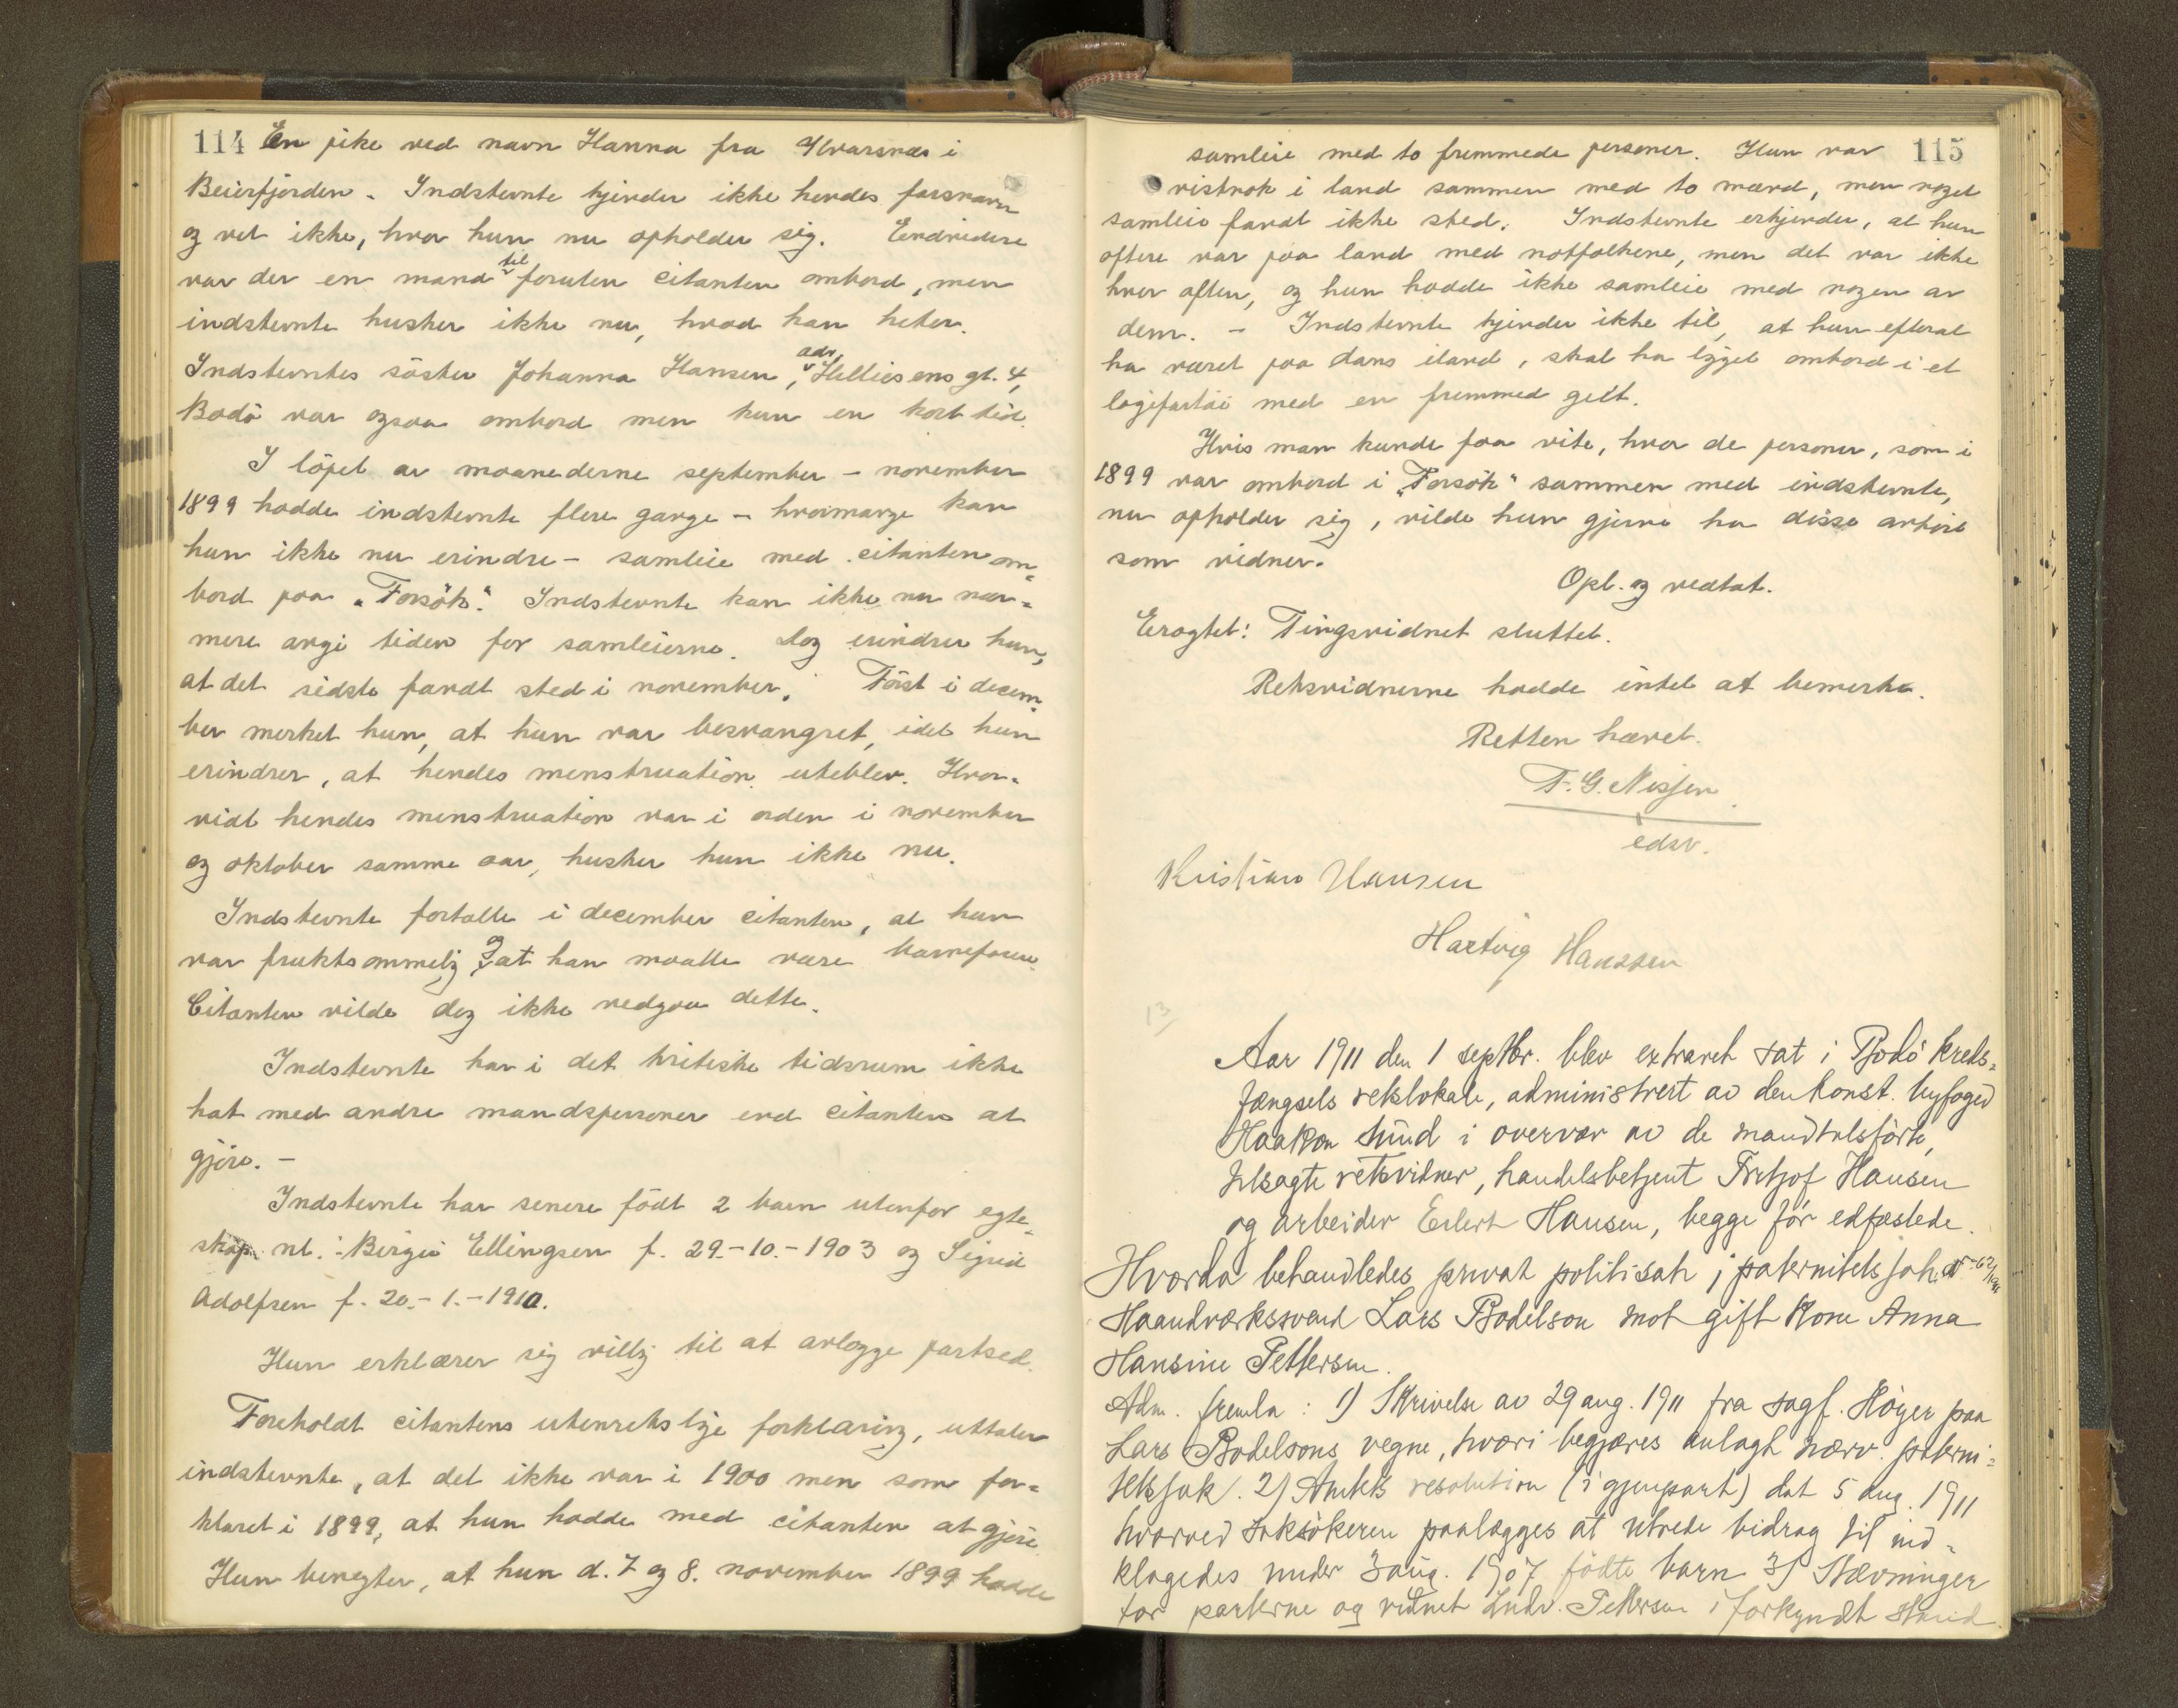 114 En pike ved navn Hanna fra Kvarsnæs i
Beierfjorden. Indstevnte kjender ikke hendes farsnavn
og vet ikke, hvor hun nu opholder sig. Endvidere
var der en mand til foruten citanten ombord, men
indstevnte husker ikke nu, hvad han heter.
Indstevntes söster Johanna Hansen, adr. Helliesens gt. 4,
Bodö var ogsaa ombord men kun en kort tid.
I löpet av maanederne september - november
1899 hadde indstevnte flere gange - hvormange kan
hun ikke nu erindre - samleie med citanten om=
bord paa "Forsök". Indstevnte kan ikke nu nær=
mere angi tiden for samleierne. Dog erindrer hun,
at det sidste fandt sted i november. Först i decem=
ber merket hun, at hun var besvangret, idet hun
erindrer, at hendes menstruation uteblev. Hvor=
vidt hendes menstruation var i orden i november
og oktober samme aar, husker hun ikke nu.
Indstevnte fortalte i december citanten, at hun
var fruktsommelig og at han maatte være barnefaren.
Citanten vilde dog ikke vedgaa dette.
Indstevnte har i det kritiske tidsrum ikke
hat med andre mandspersoner end citanten at
gjöre. -
Indstevnte har senere födt 2 barn utenfor egte=
skap nl.: Birgit Ellingsen f. 29.-10.-1903 og Sigrid
Adolfsen f. 20.-1.-1910.
Hun erklærer sig villig til at avlægge partsed.
Foreholdt citantens utenretslige forklaring, uttaler
indstevnte, at det ikke var i 1900 men som for=
klaret i 1899, at hun hadde med citanten at gjöre.
Hun benegter, at hun d. 7 og 8. november 1899 hadde
115
samleie med to fremmede personer. Hun var
vistnok i land sammen med to mænd, men noget
samleie fandt ikke sted. Indstevnte erkjender, at hun
oftere var paa land med notfolkene, men det var ikke
hver aften, og hun hadde ikke samleie med nogen av
dem. - Indstevnte kjender ikke til, at hun efterat
ha været paa dans iland, skal ha ligget ombord i et
logifartöi med en fremmed gut.
Hvis man kunde faa vite, hvor de personer, som i
1899 var ombord i "Forsök" sammen med indstevnte,
nu opholder sig, vilde hun gjerne ha disse avhört
som vidner.
Opl. og vedtat.
Eragtet: Tingsvidnet sluttet.
Retsvidnerne hadde intet at bemerke.
Retten hævet.
F. G. Nissen
edsv.
Kristian Hansen
Hartvig Hanssen
13
Aar 1911 den 1 septbr. blev extraret sat i Bodö kreds=
fængsels retslokale, administrert av den konst. byfoged
Haakon Lund i overvær av de mandtalsförte,
tilsagte retsvidner, handelsbetjent Fritjof Hansen
og arbeider Eilert Hansen, begge för edfæstede.
Hvorda behandledes privat politisak i paternitetssak. nr 62/1911
Haandverkssvend Lars Bodelson mot gift kone Anna
Hansine Pettersen.
Adm. fremla: 1) Skrivelse av 29 aug. 1911 fra sagf. Höyer paa
Lars Bodelsons vegne, hvori begjæres anlagt nærv. paterni=
tetssak. 2) Amtets resolution (i gjenpart) dat 5 aug. 1911
hvorved saksökeren paalægges at utrede bidrag til ind=
klagedes under 3 aug. 1907 födte barn 3) Stævninger
for parterne og vidnet Ludv. Pettersen i forkyndt stand